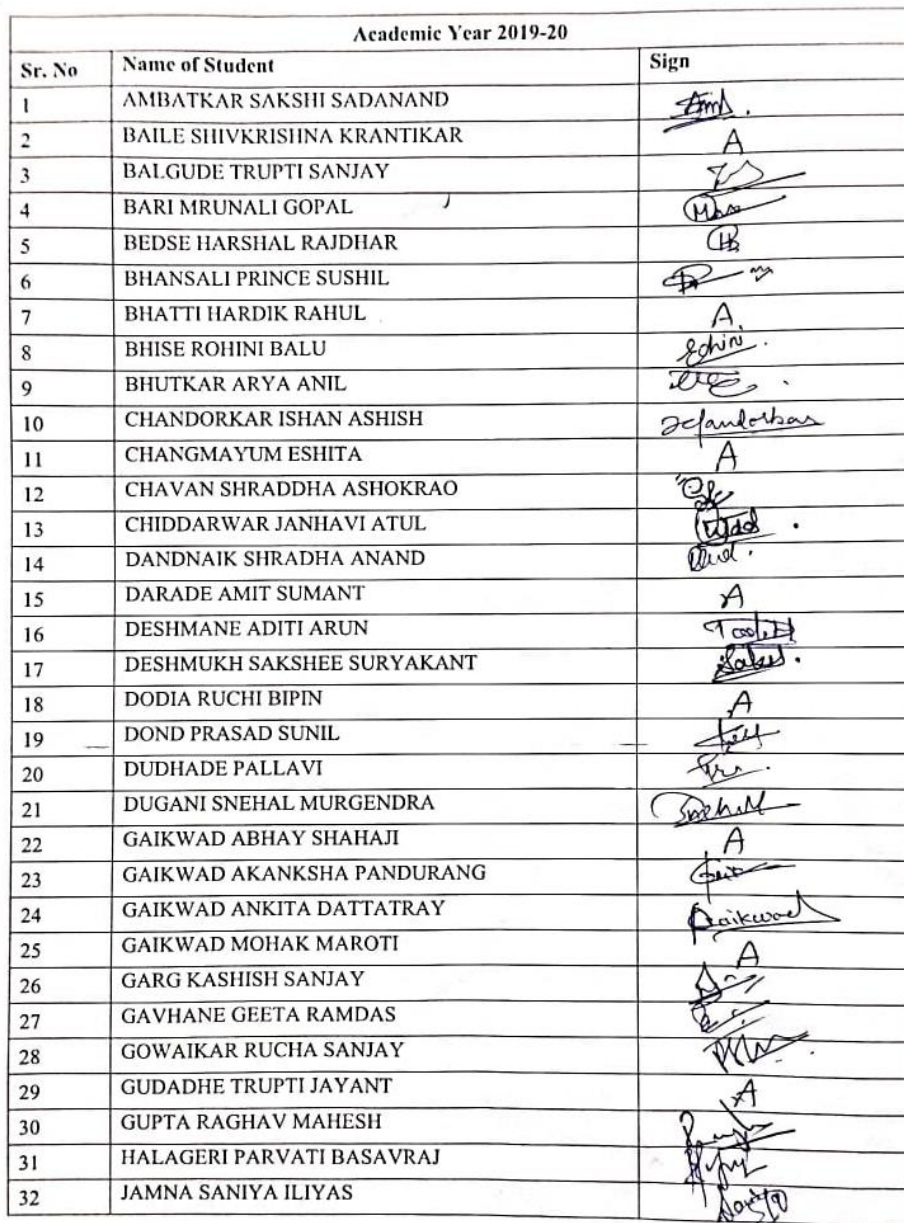 Academic Year 2019-20
Sr. No Name of Student Sign
1 AMBATKAR SAKSHI SADANAND
2 BAILE SHIVKRISHNA KRANTIKAR A
3 BALGUDE TRUPTI SANJAY
4 BARI MRUNALI GOPAL
5 BEDSE HARSHAL RAJDHAR
6 BHANSALI PRINCE SUSHIL
7 BHATTI HARDIK RAHUL A
8 BHISE ROHINI BALU
9 BHUTKAR ARYA ANIL
10 CHANDORKAR ISHAN ASHISH
11 CHANGMAYUM ESHITA A
12 CHAVAN SHRADDHA ASHOKRAO
13 CHIDDARWAR JANHAVI ATUL
14 DANDNAIK SHRADHA ANAND
15 DARADE AMIT SUMANT A
16 DESHMANE ADITI ARUN
17 DESHMUKH SAKSHEE SURYAKANT
18 DODIA RUCHI BIPIN A
19 DOND PRASAD SUNIL
20 DUDHADE PALLAVI
21 DUGANI SNEHAL MURGENDRA
22 GAIKWAD ABHAY SHAHAJI A
23 GAIKWAD AKANKSHA PANDURANG
24 GAIKWAD ANKITA DATTATRAY
25 GAIKWAD MOHAK MAROTI A
26 GARG KASHISH SANJAY
27 GAVHANE GEETA RAMDAS
28 GOWAIKAR RUCHA SANJAY
29 GUDADHE TRUPTI JAYANT A
30 GUPTA RAGHAV MAHESH
31 HALAGERI PARVATI BASAVRAJ
32 JAMNA SANIYA ILIYAS